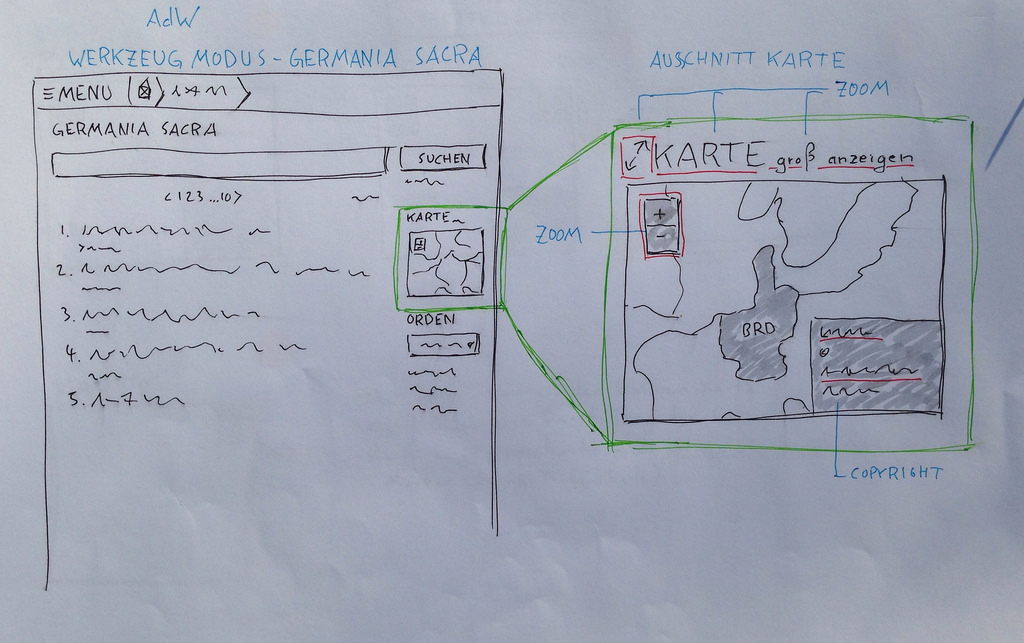 AdW
WERKZEUG MODUS - GERMANIA SACRA
≡ MENU
GERMANIA SACRA
SUCHEN
<123...10>
1.
2.
3.
4.
5.
KARTE
ORDEN
AUSCHNITT KARTE
ZOOM
KARTE groß anzeigen
+
-
ZOOM
BRD
COPYRIGHT